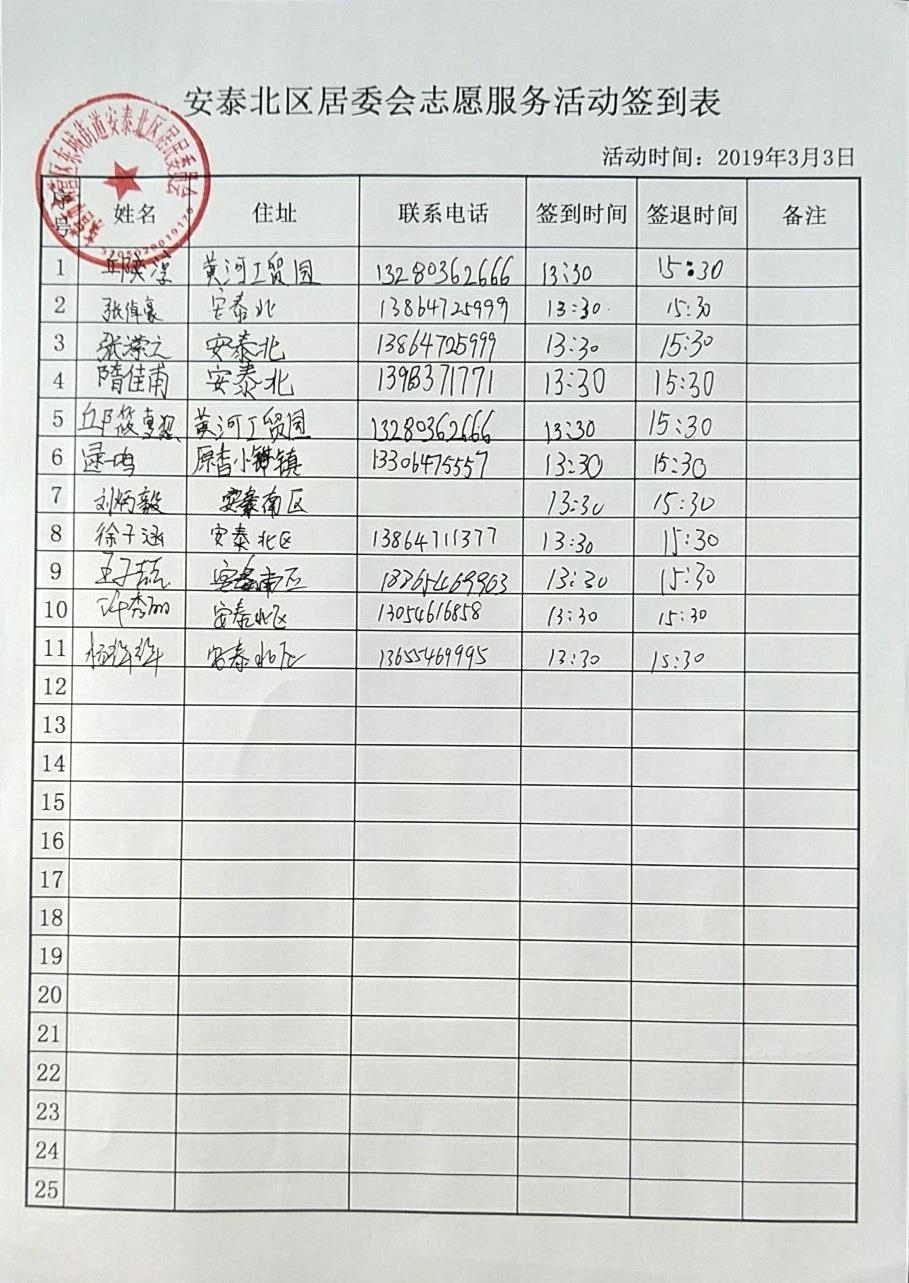 安泰北区居委会志愿服务活动签到表
活动时间：2019年3月3日
序号 姓名 住址 联系电话 签到时间 签退时间 备注
1 黄河工贸园 13280362666 13:30 15:30
2 张倬豪 安泰北 13864725999 13:30 15:30
3 安泰北 13864725999 13:30 15:30
4 隋佳甫 安泰北 13:30 15:30
5 黄河工贸园 13280362666 13:30 15:30
6 镇 13306475557 13:30 15:30
7 刘炳毅 安泰南区 13:30 15:30
8 徐子涵 安泰北区 13864711377 13:30 15:30
9 安泰南区 13:30 15:30
10 许秀丽 安泰北区 13054616858 13:30 15:30
11 安泰北区 13655469995 13:30 15:30
12
13
14
15
16
17
18
19
20
21
22
23
24
25